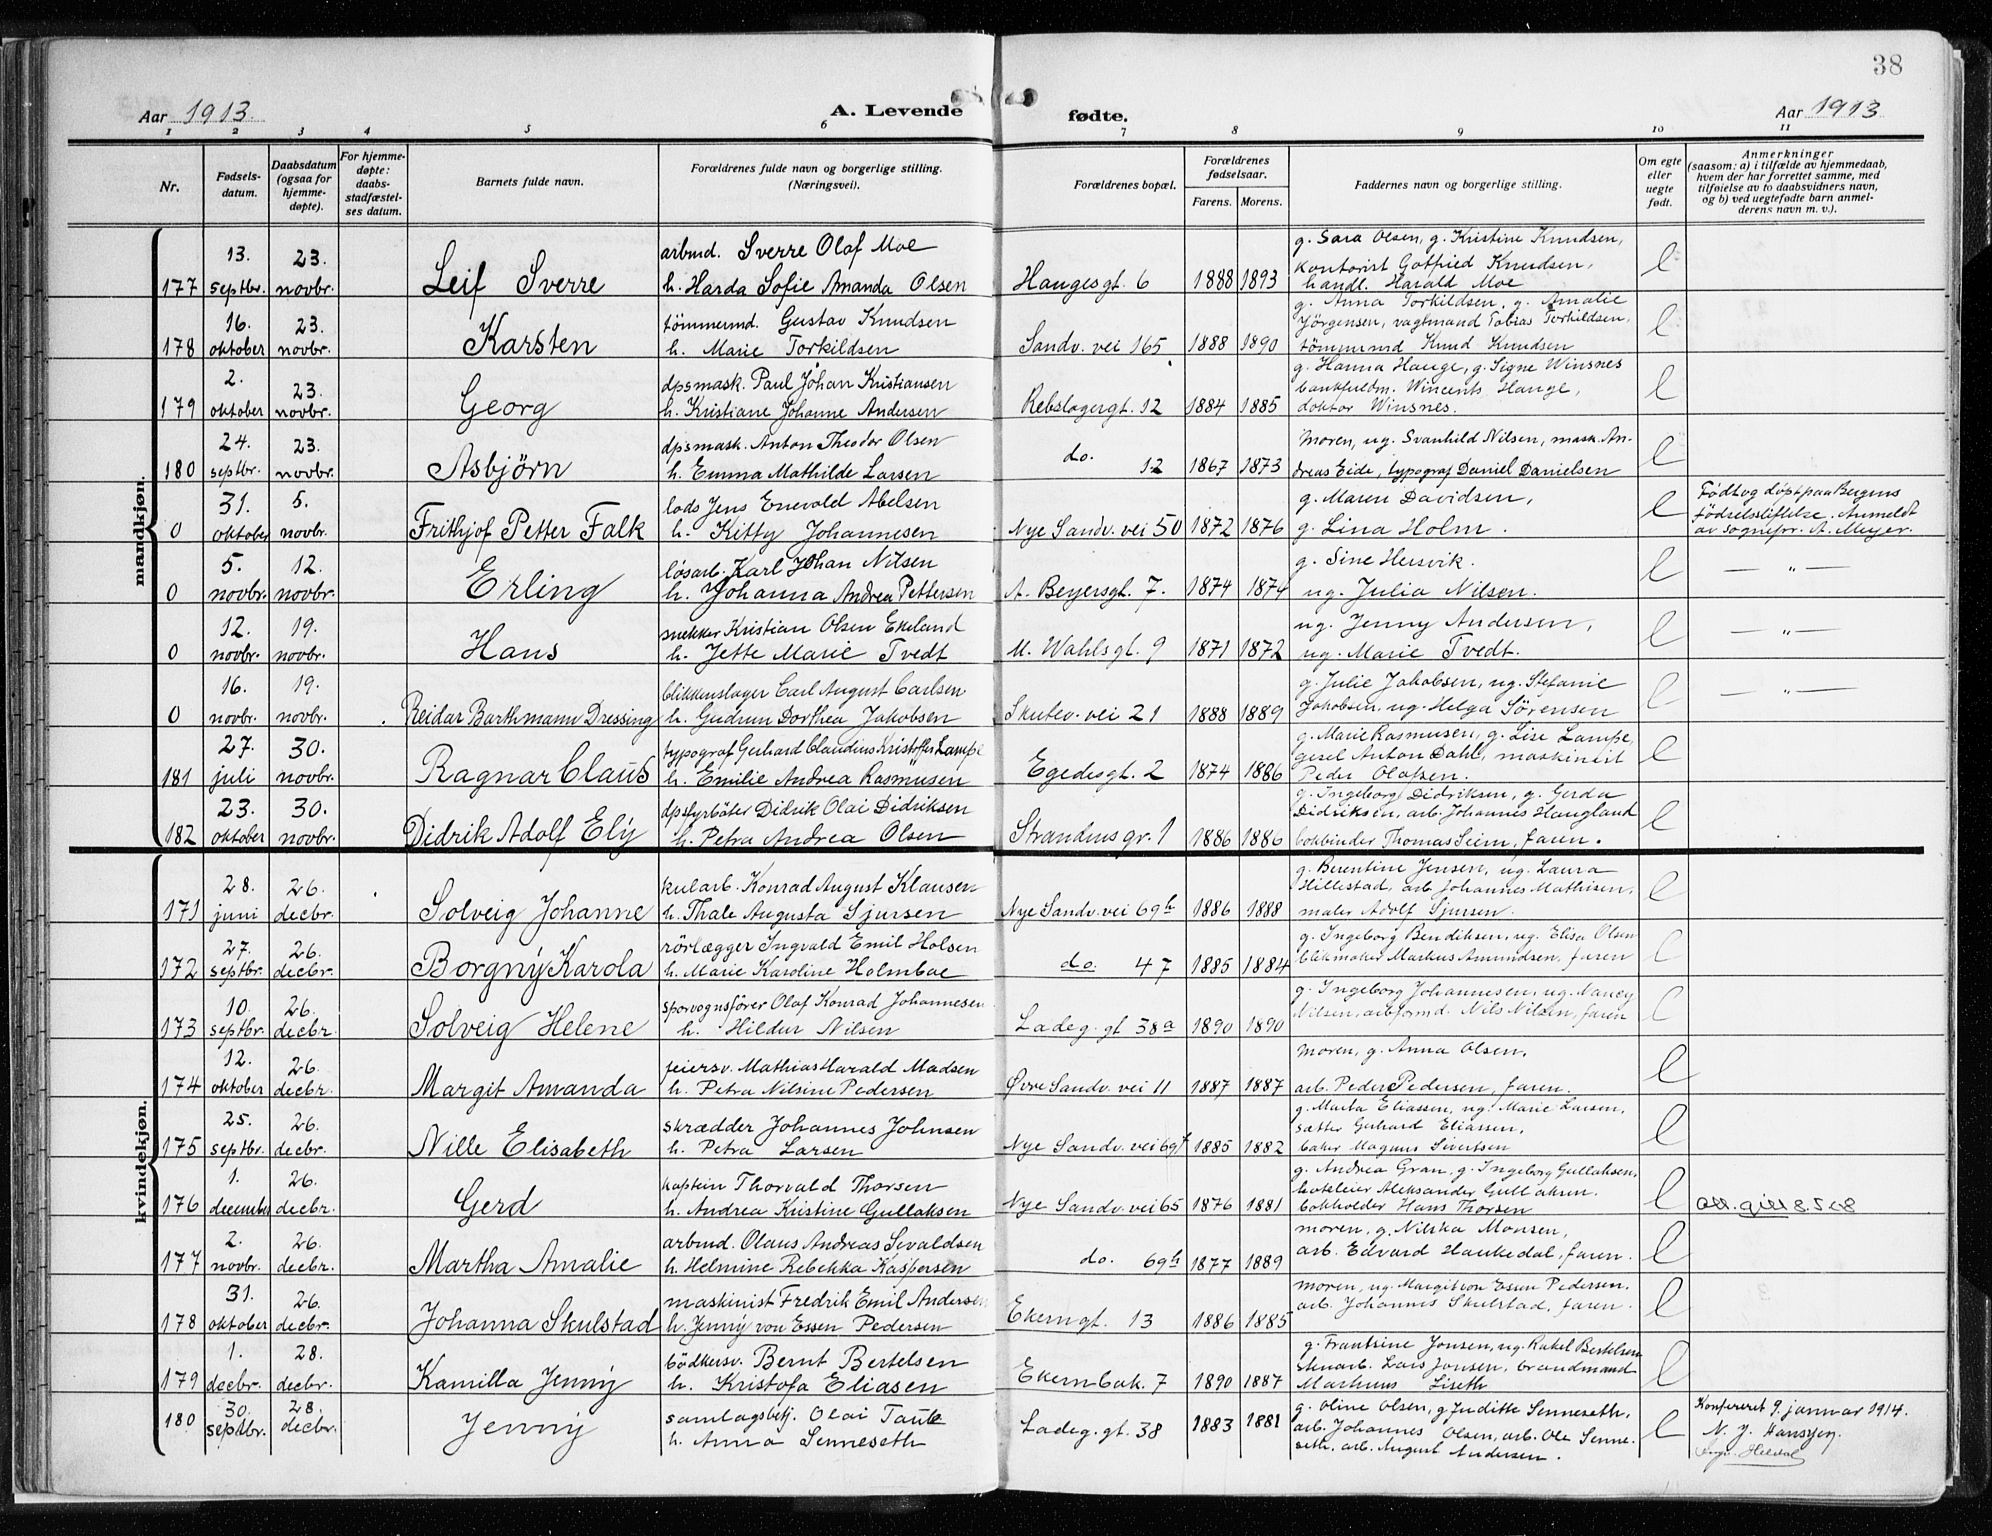 38
Aar 1913.
A. Levende
fødte.
Aar 1913
1 2 3 4 5 6 7 8 9 10 11
Nr.
Fødsels-
datum.
Daabsdatum
(ogsaa for
hjemme-
døpte).
For hjemme-
døpte:
daabs-
stadfæstel-
ses datum.
Barnets fulde navn.
Forældrenes fulde navn og borgerlige stilling.
(Næringsvei).
Forældrenes bopæl.
Forældrenes
fødselsaar.
Farens. Morens.
Faddernes navn og borgerlige stilling.
Om egte
eller
uegte
født.
Anmerkninger
(saasom: a) i tilfælde av hjemmedaab,
hvem der har forrettet samme, med
tilføielse av to daabsvidners navn,
og b) ved uegtefødte barn anmel-
derens navn m. v.).
mandkjøn.
177 13. septbr. 23. novbr. Leif Sverre
arbmd. Sverre Olaf Moe
h. Harda Sofie Amanda Olsen
Haugesgt. 6 1888 1893
g. Sara Olsen, g. Kristine Knudsen,
kontorist Gotfried Knudsen,
handl. Harald Moe
e
178 16. oktober 23. novbr. Karsten
tømmermd. Gustav Knudsen
h. Marie Torkildsen
Sandv. vei 165 1888 1890
g. Anna Torkildsen, g. Amalie
Jörgensen, vagtmand Tobias Torkildsen,
tømmermd Knud Knudsen
e
179 2. oktober 23. novbr. Georg
dpsmask. Paul Johan Kristiansen
h. Kristiane Johanne Andersen
Rebslagergt. 12 1884 1885
g. Hanna Hauge, g. Signe Winsnes
bankfuldm. Wincents Hauge,
doktor Winsnes.
e
180 24. septbr. 23. novbr. Asbjörn
dpsmask. Anton Theodor Olsen
h. Emma Mathilde Larsen
do. 12 1867 1873
Moren, ug. Svanhild Nilsen, mask. An-
dreas Eide, typograf Daniel Danielsen
e
0 31. oktober 5. novbr. Frithjof Petter Falk
lods Jens Enevold Abelsen
h. Kitty Johannesen
Nye Sandv. vei 50 1872 1876
g. Maren Davidsen,
g. Lina Holm.
e
Født og døpt paa Bergens
fødselsstiftelse. Anmeldt
av sognepr. A. Meyer.
0 5. novbr. 12. novbr. Erling
løsarb. Karl Johan Nilsen
h. Johanna Andrea Pettersen
A. Beyersgt. 7. 1874 1874
g. Sine Hersvik.
ug. Julia Nilsen.
e
— " —
0 12. novbr. 19. novbr. Hans
snekker Kristian Olsen Ekeland
h. Jette Marie Tvedt
M. Wahlsgt. 9 1871 1872
ug. Jenny Andersen,
ug. Marie Tvedt.
e
— " —
0 16. novbr. 19. novbr. Reidar Barthmann Dressing
blikkenslager Carl August Carlsen
h. Gudrun Dorthea Jakobsen
Skutev. vei 21 1888 1889
g. Julie Jakobsen, ug. Stefanie
Jakobsen, ug. Helga Sørensen
e
— " —
181 27. juli 30. novbr. Ragnar Claus
typograf Gerhard Claudius Kristoffer Lampe
h. Emilie Andrea Rasmusen
Egedesgt. 2 1874 1886
g. Marie Rasmusen, g. Lise Lampe,
gesel Anton Dahl, maskinist
Peder Olafsen.
e
182 23. oktober 30. novbr. Didrik Adolf Ely
dpsfyrbøter Didrik Olai Didriksen
h. Petra Andrea Olsen
Strandens gr. 1 1886 1886
g. Ingeborg Didriksen, g. Gerda
Didriksen, arb. Johannes Haugland
bokbinder Thomas Seim, faren.
e
kvindekjøn.
171 28. juni 26. decbr. Solveig Johanne
kularb. Konrad August Klausen
h. Thale Augusta Sjursen
Nye Sandv. vei 69h 1886 1888
g. Berentine Jensen, ug. Laura
Hillestad, arb. Johannes Mathisen,
maler Adolf Sjursen.
e
172 27. septbr. 26. decbr. Borgny Karola
rørlægger Ingvald Emil Holsen
h. Marie Karoline Holmboe
do. 47 1885 1884
g. Ingeborg Bendiksen, ug. Elisa Olsen
blikmaker Markus Amundsen, faren
e
173 10. septbr. 26. decbr. Solveig Helene
sporvognsfører Olaf Konrad Johannesen
h. Hildur Nilsen
Ladeg. gt 38a 1890 1890
g. Ingeborg Johannesen, ug. Nancy
Nilsen, arbformd. Nils Nilsen, faren
e
174 12. oktober 26. decbr. Margit Amanda
feiersv. Mathias Harald Madsen
h. Petra Nilsine Pedersen
Øvre Sandv. vei 11 1887 1887
Moren, g. Anna Olsen,
arb. Peder Pedersen, faren.
e
175 25. septbr. 26. decbr. Nille Elisabeth
skrædder Johannes Johnsen
h. Petra Larsen
Nye Sandv. vei 69f 1885 1882
g. Marta Eliassen, ug. Marie Larsen,
sætter Gerhard Eliassen,
baker Magnus Sivertsen
e
176 1. december 26. decbr. Gerd
kaptein Thorvald Thorsen
h. Andrea Kristine Gullaksen
Nye Sandv. vei 65 1876 1881
g. Andrea Gran, g. Ingeborg Gullaksen,
hoteleier Aleksander Gullaksen.
bokholder Hans Thorsen
e
177 2. novbr. 26. decbr. Martha Amalie
arbmd. Olaus Andreas Sivaldsen
h. Helmine Rebekka Kaspersen
do. 69h 1877 1889
moren, g. Nilska Monsen,
arb. Edvard Haukedal, faren.
e
178 31. oktober 26. decbr. Johanna Skulstad
maskinist Fredrik Emil Andersen
h. Jenny von Essen Pedersen
Ekerngt. 13 1886 1885
moren, ug. Margit von Essen Pedersen.
arb. Johannes Skulstad, faren.
e
179 1. decbr. 28. decbr. Kamilla Jenny
bödkersv. Bernt Bertelsen
h. Kristofa Eliasen
Ekernbak. 7 1890 1887
g. Frantsine Jonsen, ug. Rakel Bertelsen
Lars Jonsen, brandmand
Markus Liseth
e
180 30. septbr. 28. decbr. Jenny
samlagsbetj. Olai Taule
h. Anna Senneseth
Ladeg. gt. 38 1883 1881
g. Oline Olsen, g Juditte Senneseth,
arb. Johannes Olsen, arb. Ole Senne-
seth, arb. August Andersen.
e
Konfereret 9. januar 1914.